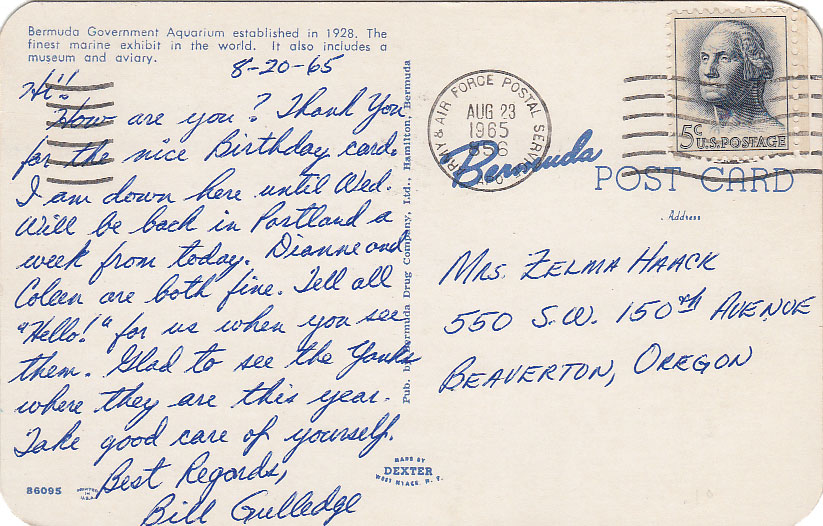 Bermuda Government Aquarium established in 1928. The
finest marine exhibit in the world. It also includes a
museum and aviary.
8-20-65
Hi!
How are you? Thank You
for the nice Birthday card.
I am down here until Wed.
Will be back in Portland a
week from today. Dianne and
Coleen are both fine. Tell all
"Hello!" for us when you see
them. Glad to see the Yanks
where they are this year.
Take good care of yourself.
Best Regards,
Bill Gulledge
86095
PRINTED
IN
U.S.A.
Pub. by Bermuda Drug Company, Ltd., Hamilton, Bermuda
MADE BY
DEXTER
WEST NYACK, N. Y.
ARMY & AIR FORCE POSTAL SERVICE
AUG 23
1965
856
APO
5c
U.S. POSTAGE
Bermuda
POST CARD
Address
MRS. ZELMA HAACK
550 S.W. 150th AVENUE
BEAVERTON, OREGON